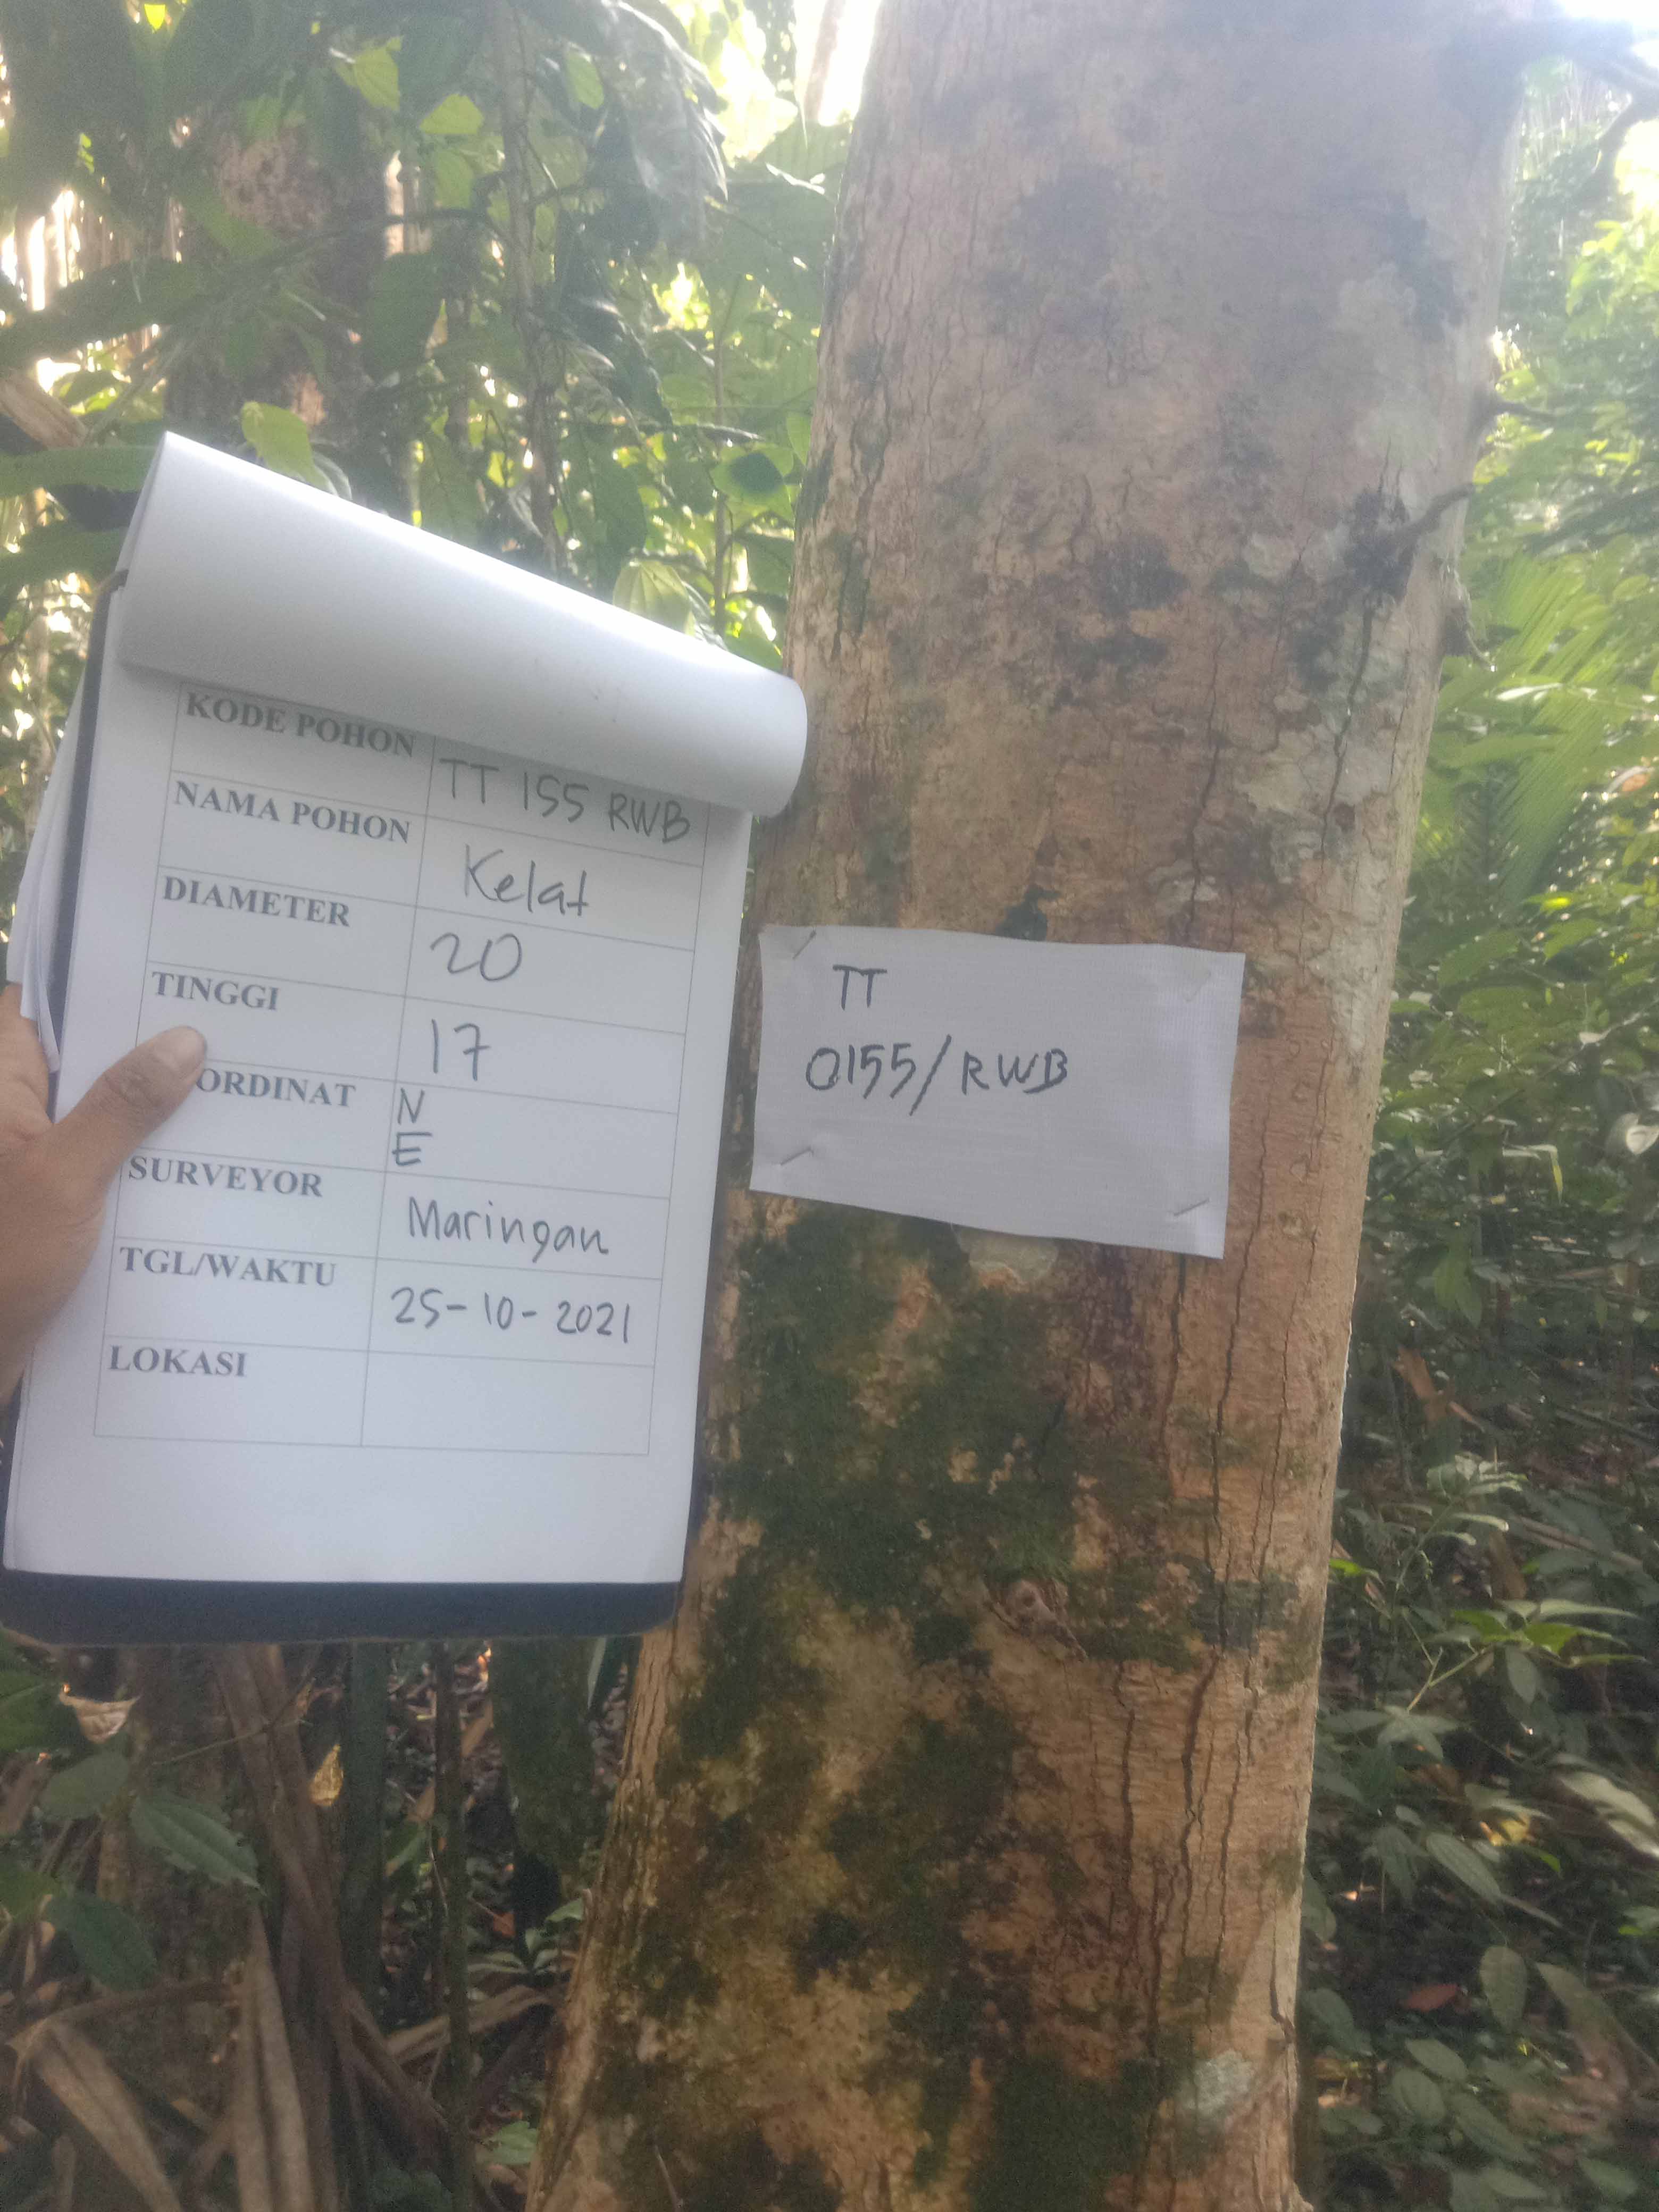 KODE POHON TT 155 RWB
NAMA POHON Kelat
DIAMETER 20
TINGGI 17
ORDINAT N
E
SURVEYOR Maringan
TGL/WAKTU 25-10-2021
LOKASI
TT
0155/RWB